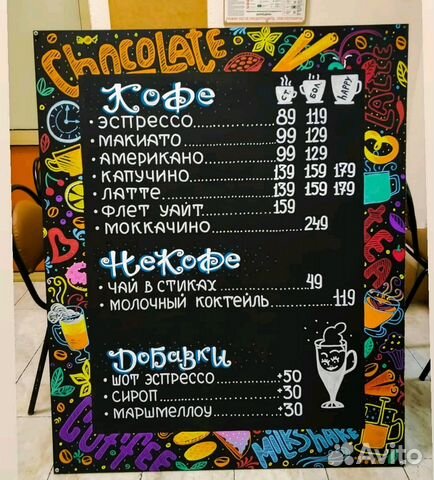 CHOCOLATE
LATTE
Кофе
СТ. БОЛ HAPPY
• ЭСПРЕССО......................89 119
• МАКИАТО......................99 129
• АМЕРИКАНО..................99 129
• КАПУЧИНО..................139 159 179
• ЛАТТЕ..........................139 159 179
• ФЛЕТ УАЙТ.................159
• МОККАЧИНО......................249
НеКофе
• ЧАЙ В СТИКАХ......................49
• МОЛОЧНЫЙ КОКТЕЙЛЬ..............119
Добавки
• ШОТ ЭСПРЕССО..............+50
• СИРОП..........................+30
• МАРШМЕЛЛОУ..............+30
TEA
COFFEE
MILKSHAKE
Avito